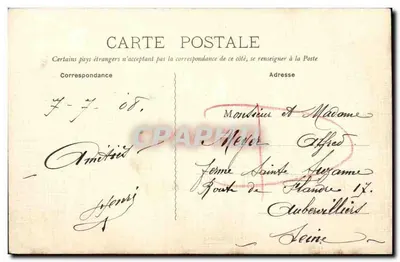 CARTE POSTALE
Certains pays étrangers n'acceptant pas la correspondance de ce côté, se renseigner à la Poste
Correspondance
Adresse
7-7-08.
Amitiés
Henri
Monsieur et Madame
Meyer Alfred
ferme Sainte Suzanne
Route de Flandre 17.
Aubervilliers
Seine